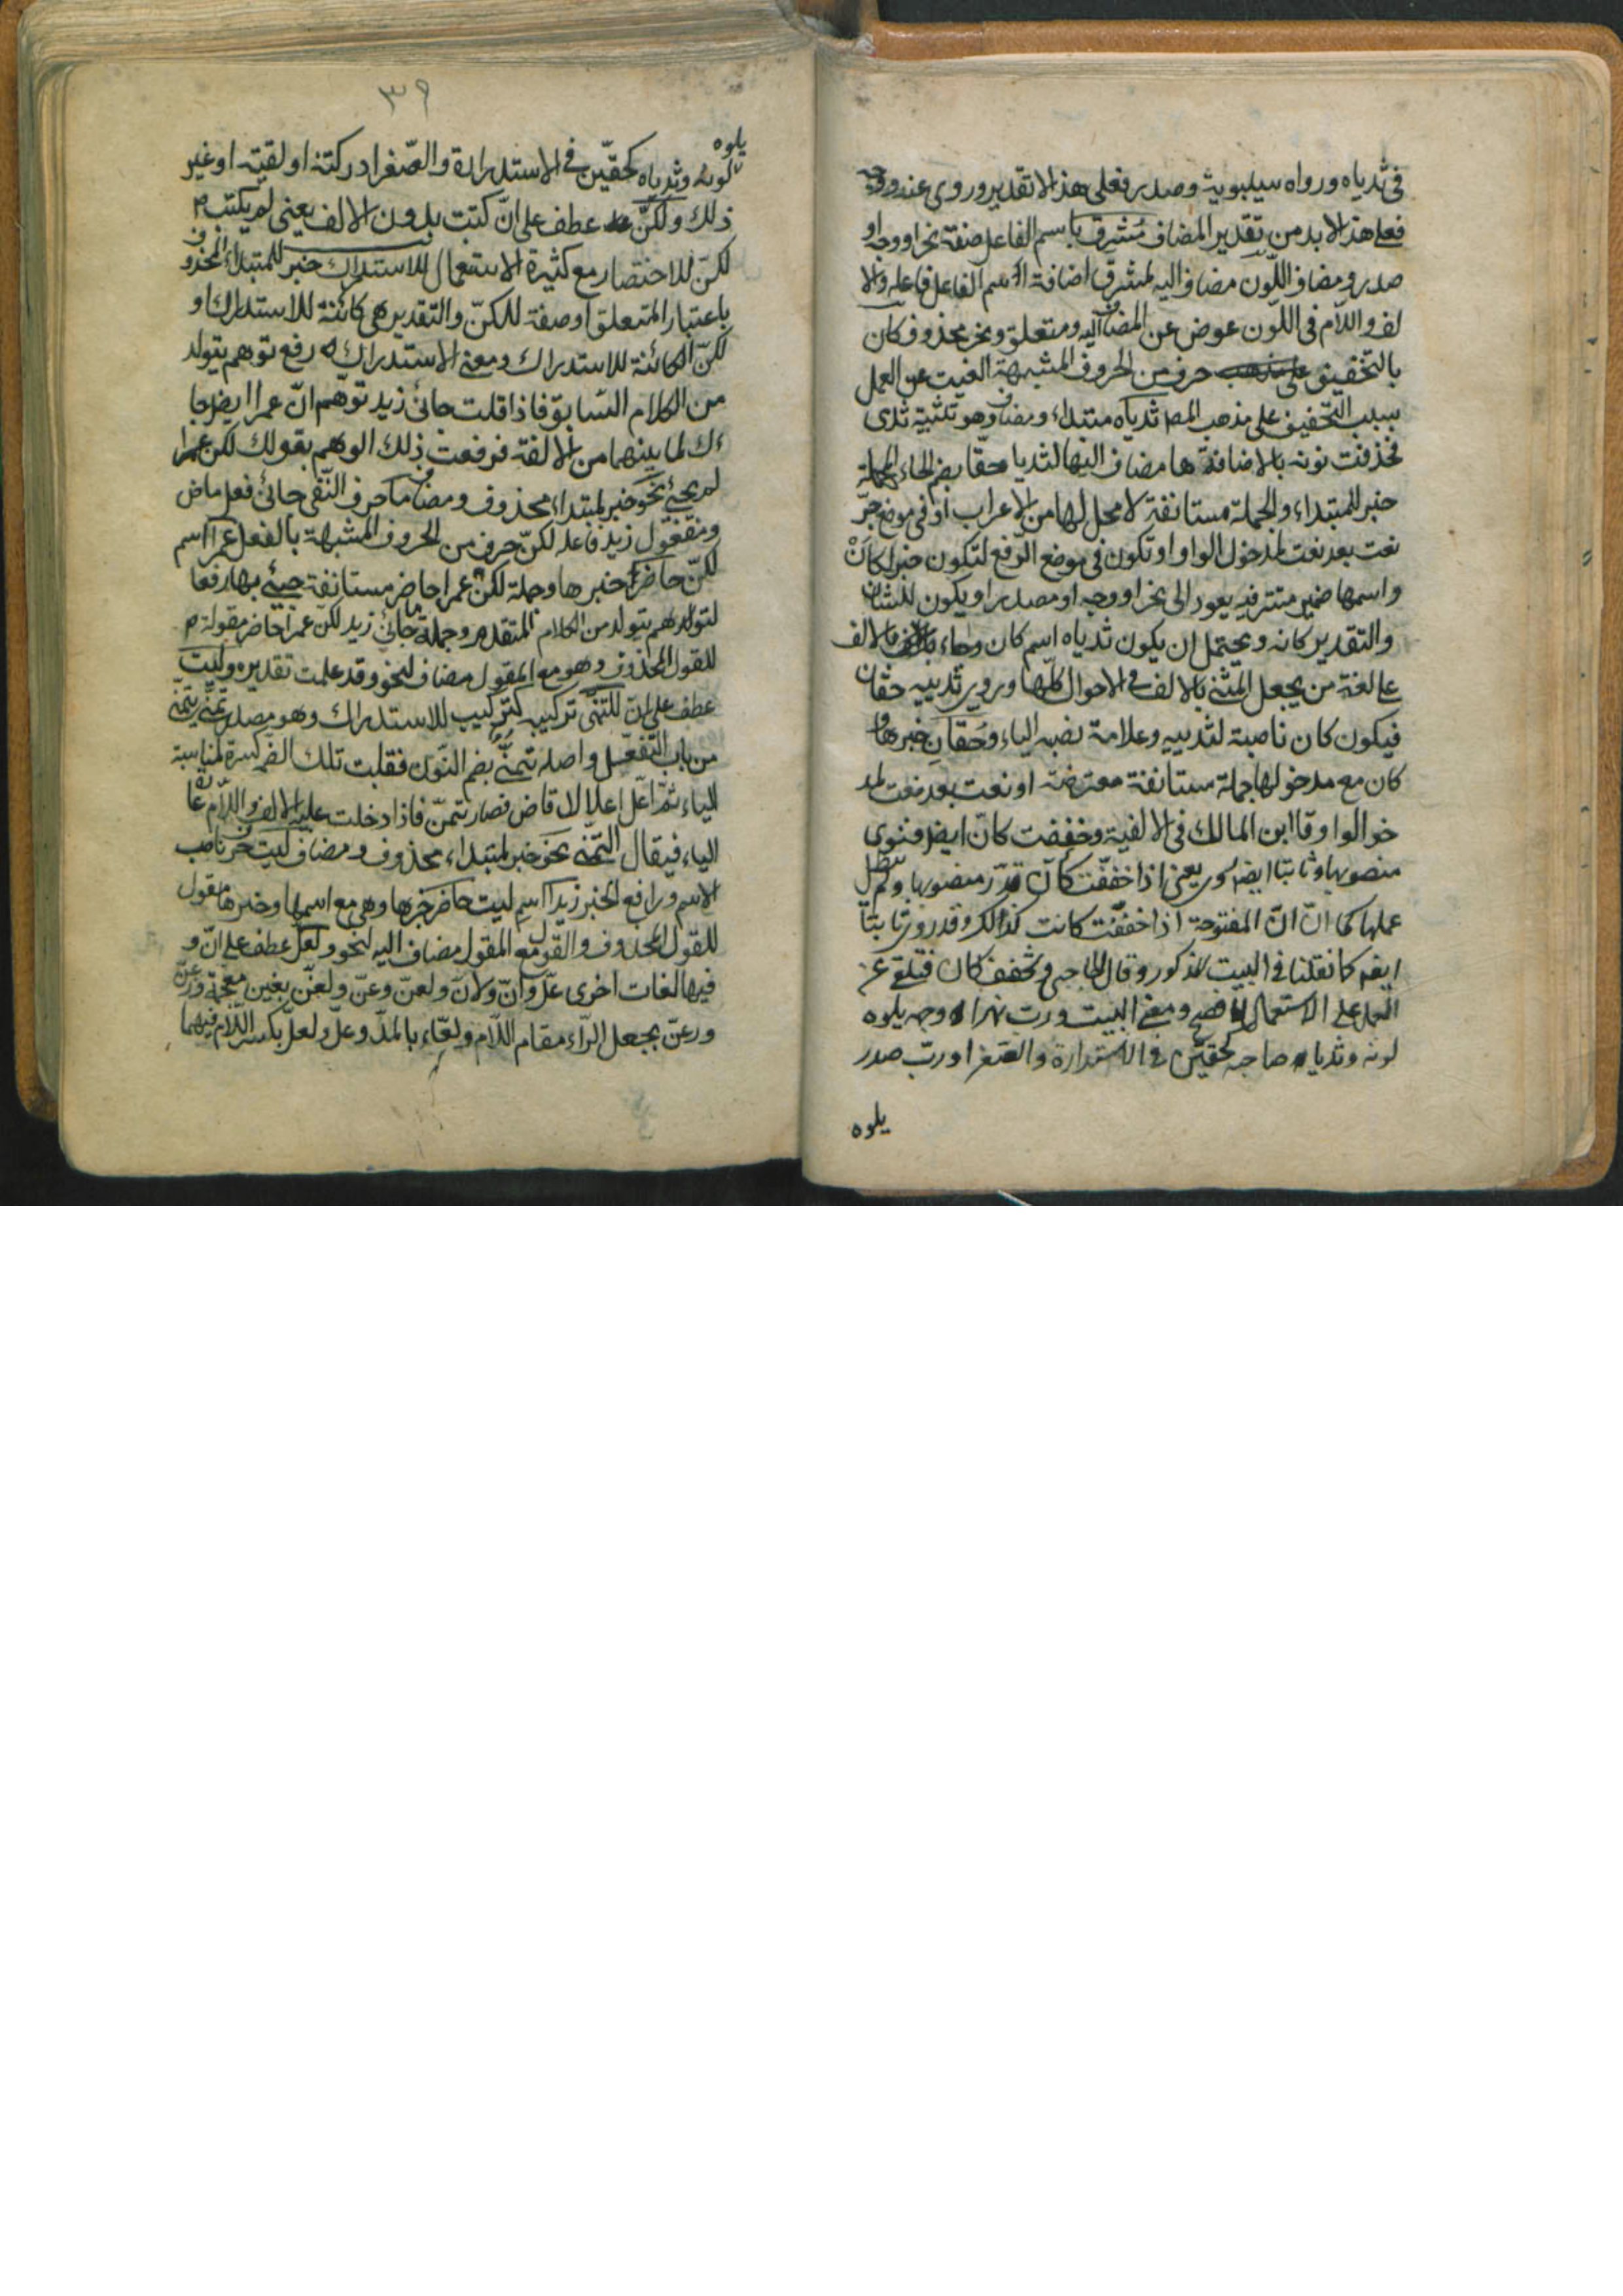 فى ثدياه ورواه سيبويه وصدر فعلى هذا لا تقدير وروى عنه ووجه
فعلى هذا لا بد من تقدير المضاف مشرق باسم الفاعل صفة نحر او وجه او
صدر ومضاف اللون مضاف اليه لمشرق اضافة اسم الفاعل فاعله والا
لف واللام فى اللون عوض عن المضاف اليه ومتعلق ونحر محذوف كان
بالتخفيف حرف من الحروف المشبهة الغيت عن العمل
بسبب التخفيف على مذهب المص ثدياه مبتداء ومضاف وهو تثنية ثدى
فحذفت نونه بالاضافة ها مضاف اليها لثديا حقا بضم الحاء المهملة
خبر للمبتداء والجملة مستانفة لا محل لها من الاعراب او فى موضع جر
نعت بعد نعت لمدخول الواو او تكون فى موضع الرفع لتكون خبر لكان
واسمها ضمير مستتر فيه يعود الى نحر او وجه او صدر او يكون للشان
والتقدير كانه ويحتمل ان يكون ثدياه اسم كان وجاء بالالف
على لغة من يجعل المثنى بالالف فى الاحوال كلها وروى ثدييه حقان
فيكون كان ناصبة لثدييه وعلامة نصبه الياء وحقان خبرها و
كان مع مدخولها جملة مستانفة معترضة او نعت بعد نعت لمد
خوالوا وقا ابن المالك فى الالفية وخففت كان ايضا فنوى
منصوبها وثابتا ايضا روى يعنى اذا خففت كان قدر منصوبها ولم يبطل
عملها كما ان ان المفتوحة اذا خففت كانت كذالك وقد روى ثابتا
ايضا كما نقلنا فى البيت المذكور وقال الحاجبى وتخفف كان فتلغى عن
العمل على الاستعمال الافصح ومعنى البيت ورب نهرا وجه يلوه
لونه وثدياه صاحبه كحقين فى الاستدارة والصغر او رب صدر
يلوه
٣٩
يلوه
لونه وثدياه كحقين فى الاستدارة والصغر ادركته او لقيته او غير
ذلك ولكن عطف على ان كتبت بدون الالف يعنى لم يكتب
لكن للاختصار مع كثيرة الاستعمال للاستدراك خبر للمبتداء المحذوف
باعتبار المتعلق او صفة للكن والتقدير هى كائنة للاستدراك او
لكن الكائنة للاستدراك ومعنى الاستدراك رفع توهم يتولد
من الكلام السابق فاذا قلت جائنى زيد توهم ان عمرا ايضا جا
ءك لما بينهما من الالفة فرفعت ذلك الوهم بقولك لكن عمرا
لم يجئ نحو خبر لمبتداء محذوف ومضاف ما حرف النفى جائنى فعل ماض
ومفعول زيد فاعله لكن حرف من الحروف المشبهة بالفعل عمرا اسم
لكن حاضر خبرها وجملة لكن عمرا حاضر مستانفة جيئ بها رفعا
لتوهم يتولد من الكلام المتقدم وجملة ما جائنى زيد لكن عمرا حاضر مقولة
للقول المحذوف وهو مع المقول مضاف لنحو وقد علمت تقديره وليت
عطف على ان للتمنى تركيبه كتركيب للاستدراك وهو مصدر تمنى يتمنى
من باب التفعل واصله تمنى بضم النون فقلبت تلك الضم كسرة لمناسبة
الياء ثم اعل اعلال قاض فصار تمن فاذا دخلت عليه الالف واللام
الياء فيقال التمنى نحو خبر لمبتداء محذوف ومضاف ليت حرف ناصب
الاسم ورافع الخبر زيدا اسم ليت حاضر خبرها وهى مع اسمها وخبرها مقول
للقول المحذوف والقول مع المقول مضاف اليه لنحو ولعل عطف على ان و
فيها لغات اخرى عل وان ولان ولعن وعن ولغن بغين معجمة ورعن
ورعن بجعل الراء مقام اللام ولعاء بالمد وعل ولعل بكسر اللام فيهما